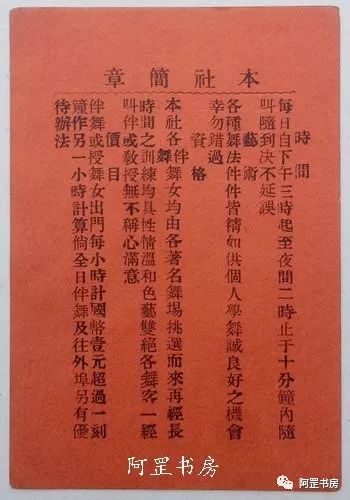 本社簡章
時間
每日自下午三時起至夜間二時止于十分鐘內隨
叫隨到决不延誤
藝術
各種舞法件件皆精如供個人學舞誠良好之機會
幸勿錯過
資格
本社各伴舞女均由各著名舞場挑選而來再經長
時間之訓練均具性情溫和色藝雙絕各舞客一經
叫伴或教授無不稱心滿意
價目
伴舞或授舞女出門每小時計國幣壹元超過一刻
鐘作另一小時計算倘全日伴舞及往外埠另有優
待辦法
阿罡书房
阿罡书房